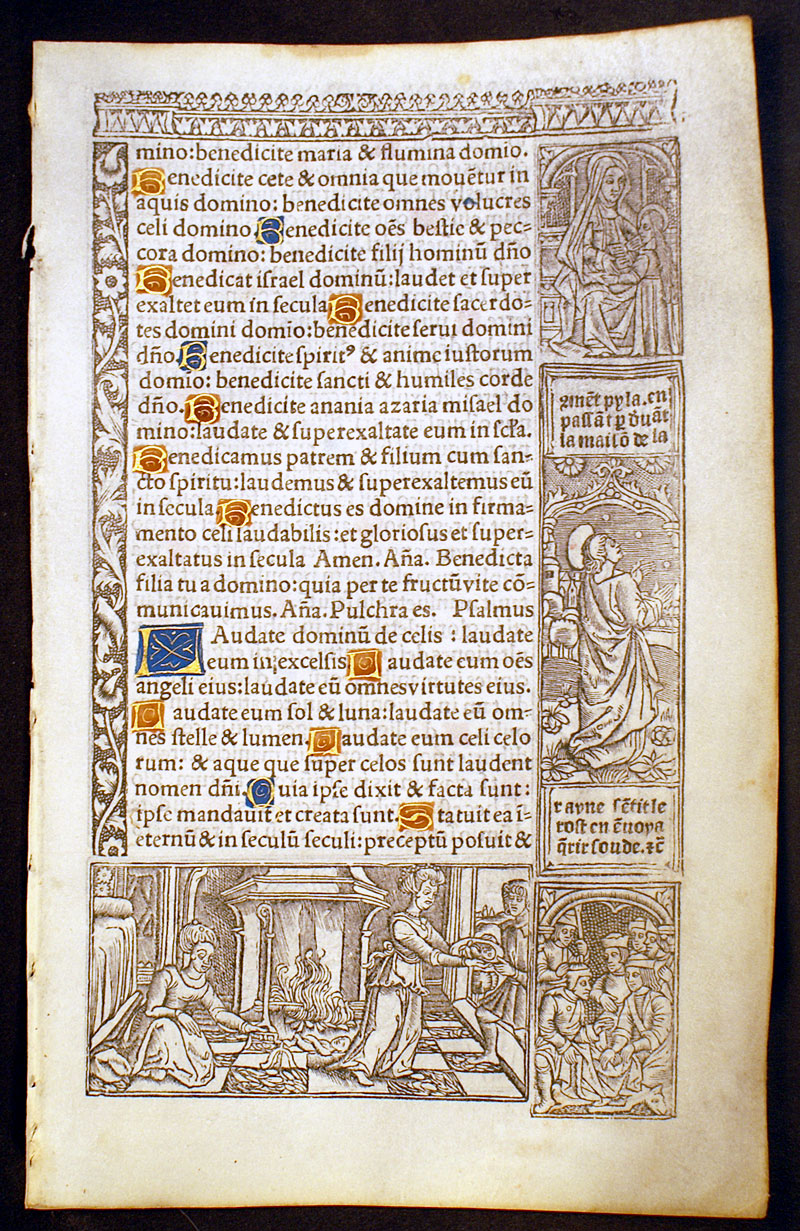 mino:benedicite maria & flumina domio.
Benedicite cete & omnia que mouẽtur in
aquis domino: benedicite omnes volucres
celi domino. Benedicite oẽs bestie & pec-
cora domino: benedicite filij hominũ dño
Benedicat israel dominũ: laudet et super
exaltet eum in secula. Benedicite sacerdo-
tes domini domio: benedicite serui domini
dño. Benedicite spirit⁹ & animę iustorum
domio: benedicite sancti & humiles corde
dño. Benedicite anania azaria misael do
mino: laudate & superexaltate eum in scła.
Benedicamus patrem & filium cum san-
cto spiritu: laudemus & superexaltemus eũ
in secula. Benedictus es domine in firma-
mento celi laudabilis: et gloriosus et super-
exaltatus in secula Amen. Aña. Benedicta
filia tu a domino: quia per te fructũ vite cõ-
municauimus. Aña. Pulchra es. Psalmus
LAudate dominũ de celis: laudate
eum in excelsis. Laudate eum oẽs
angeli eius: laudate eũ omnes virtutes eius.
Laudate eum sol & luna: laudate eũ om-
nes stelle & lumen. Laudate eum celi celo
rum: & aque que super celos sunt laudent
nomen dñi. Quia ipse dixit & facta sunt:
ipse mandauit et creata sunt. Statuit ea ĩ-
eternũ & in seculũ seculi: preceptũ posuit &
pyla. en
la maisõ de la
rayne sẽtit le
rost en ẽuoya
q̃rir soude. ⁊c̃